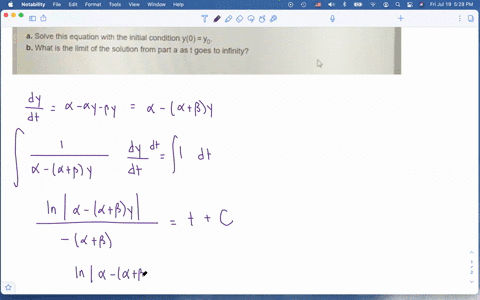 Notability File Edit View Window Help Fri Jul 19 5:28 PM
a. Solve this equation with the initial condition y(0) = y₀.
b. What is the limit of the solution from part a as t goes to infinity?
dy/dt = α - αy - βy = α - (α+β)y
∫ 1/(α - (α+β)y) dy/dt dt = ∫ 1 dt
ln|α - (α+β)y| / -(α+β) = t + C
ln|α - (α+β